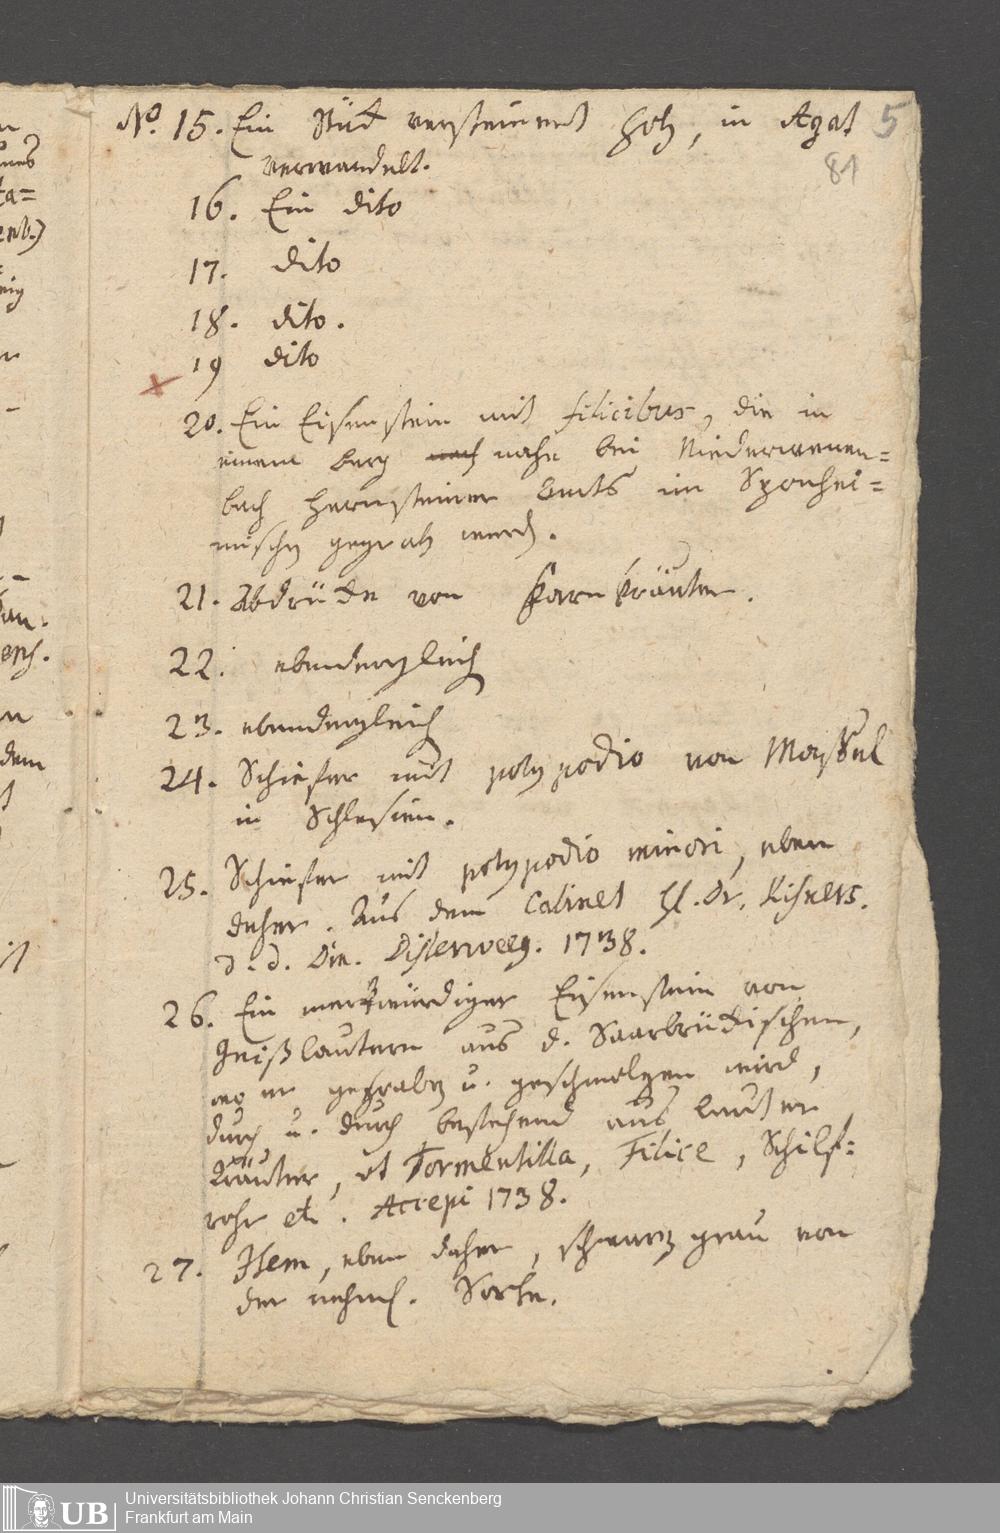 No. 15. Ein Stück versteinert Holz, in Agat 5
verwandelt. 81
16. Ein dito
17. dito
18. dito.
19 dito
20. Ein Eisenstein mit filicibus, die in
einem berg nahe bei Niederwenen=
bach Amts im Sponhei=
mischen gegraben werden.
21. Abdrücke von Farn kräuter.
22. ebendergleich
23. ebendergleich
24. Schiefer mit polypodio von
in Schlesien.
25. Schiefer mit polypodio minori, eben
daher. Aus dem Cabinet Dr. Kisners.
d. d. 1738.
26. Ein merkwürdiger Eisenstein von
Geißlautern aus d. Saarbrückischen,
wo er gegraben u. geschmolzen wird,
durch u. durch bestehend aus lauter
Kräuter, ut Tormentilla, Filice, Schilf=
rohr etc. Accepi 1738.
27. Item, eben daher, schwarz grau von
der nehml. Sorte.
UB
Universitätsbibliothek Johann Christian Senckenberg
Frankfurt am Main